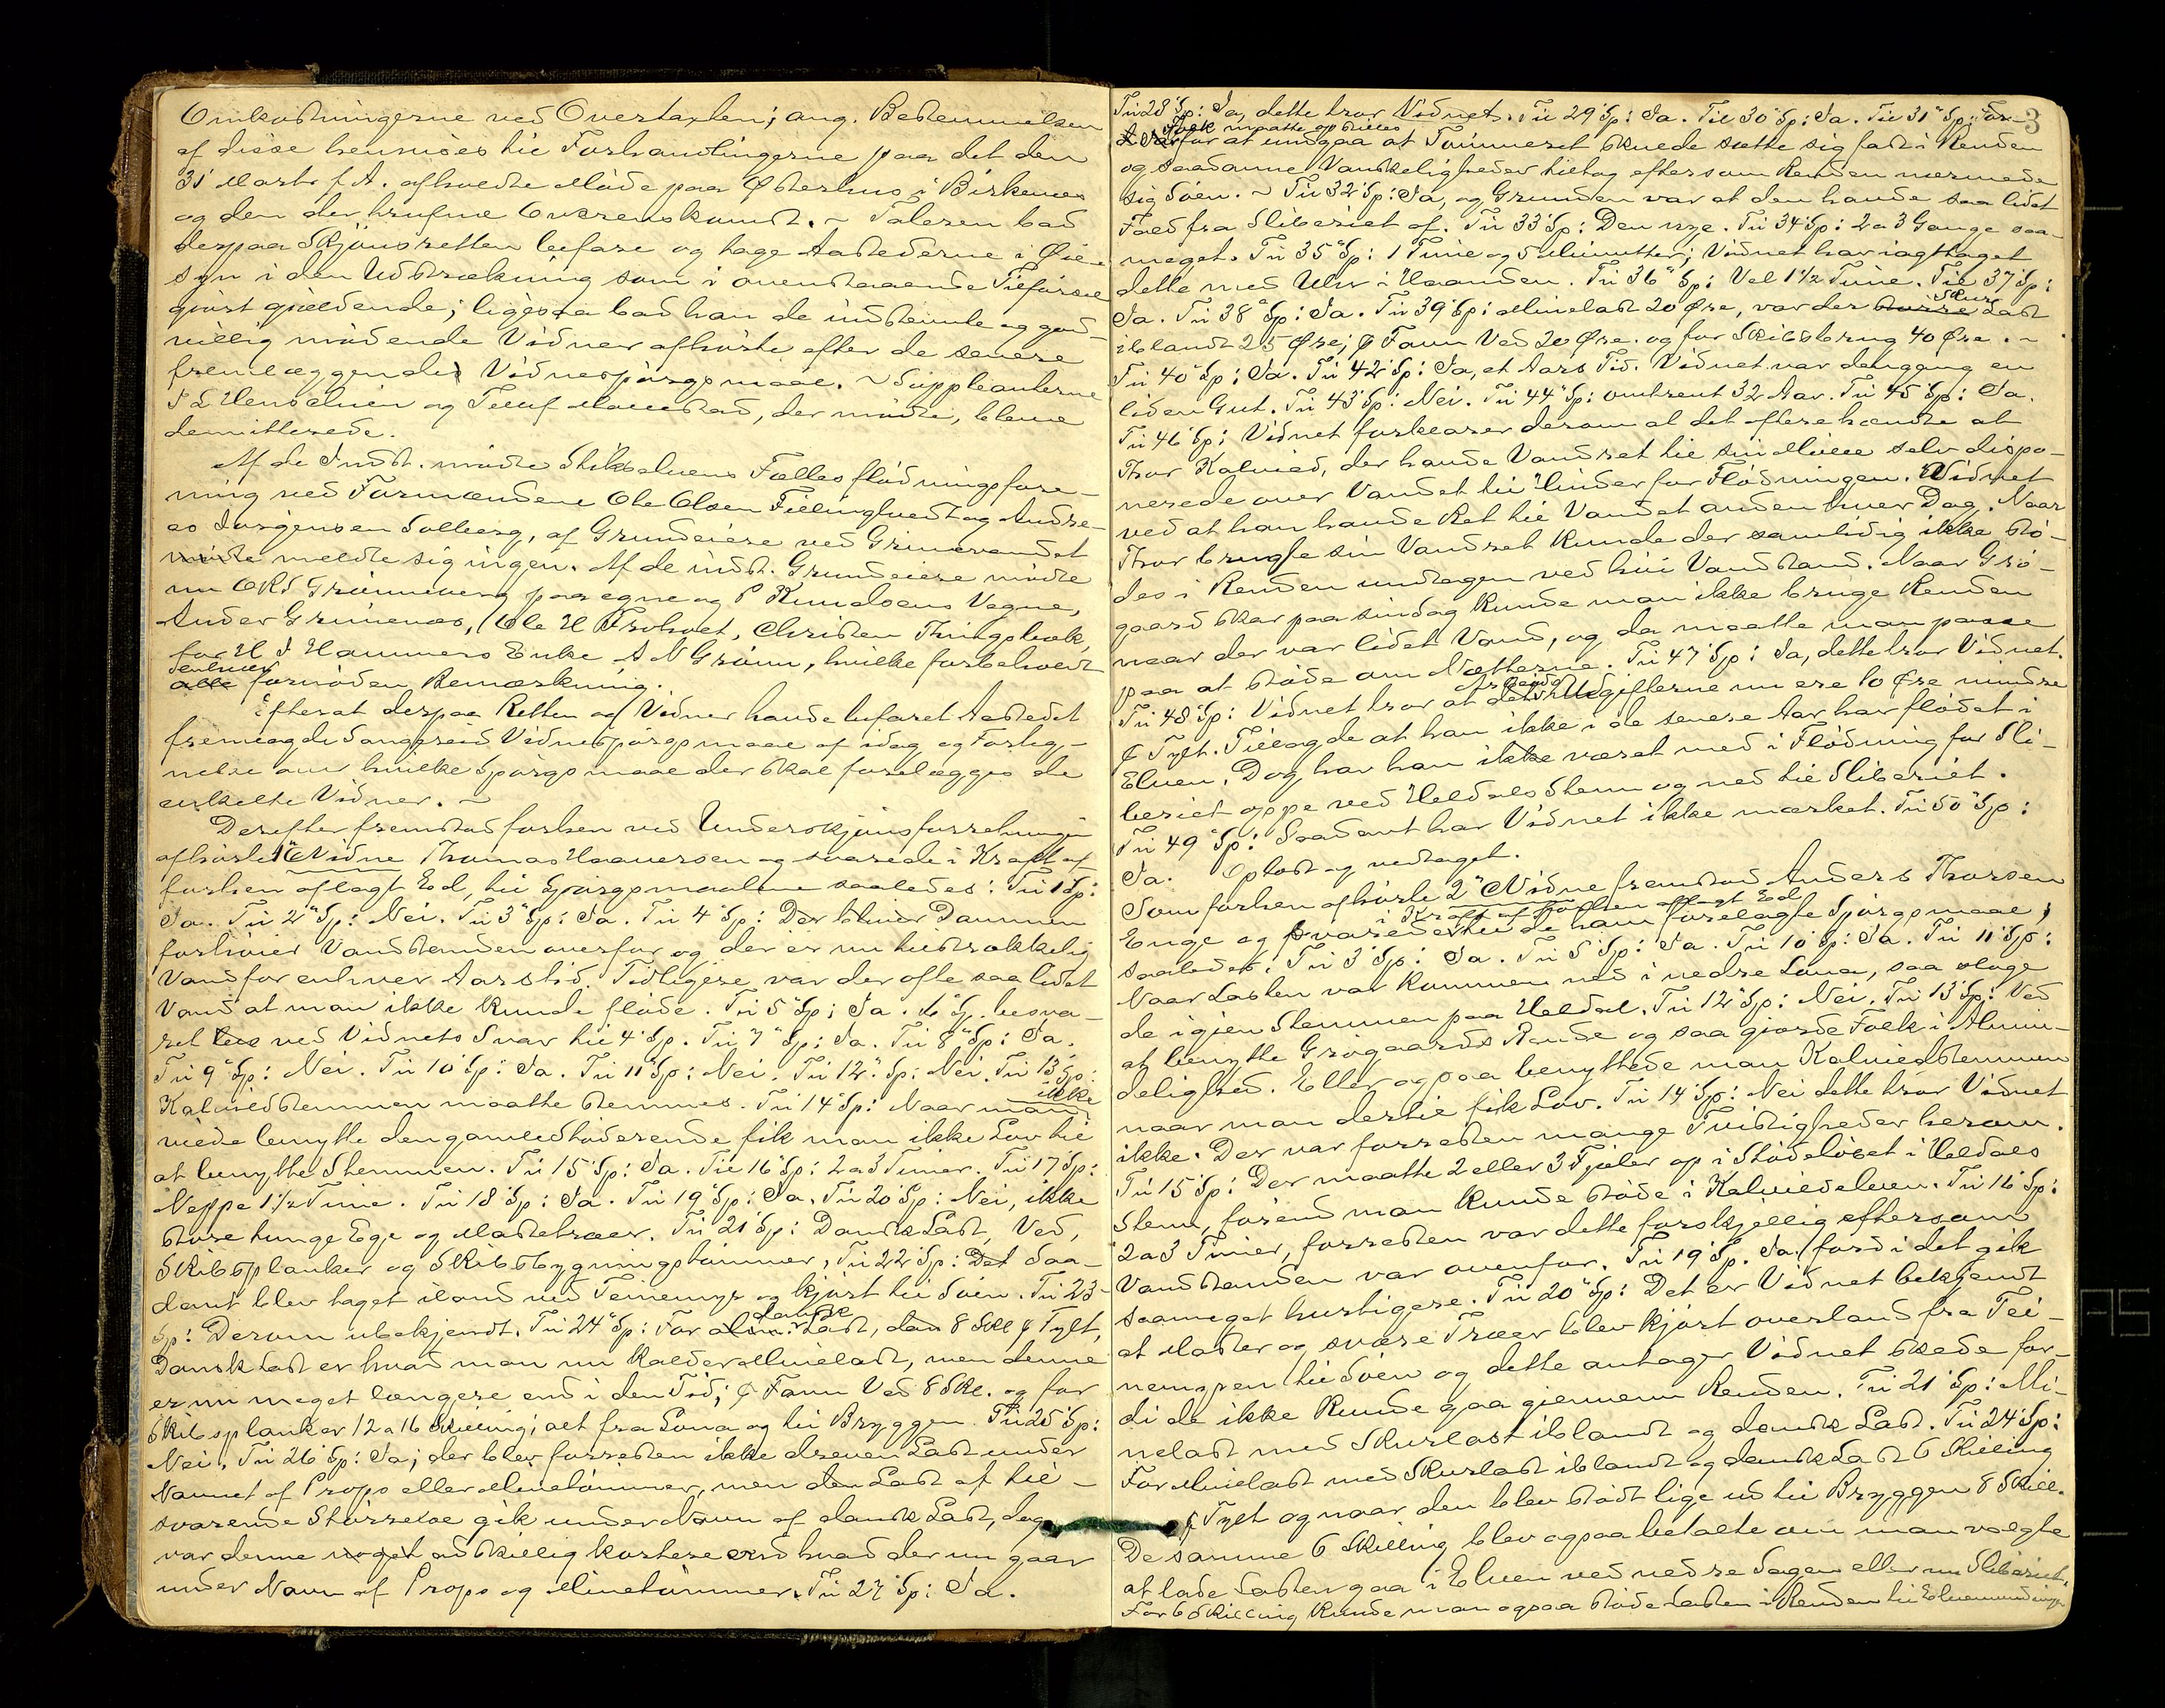 Omkostningerne ved Overtaxten; ang. Bestemmelsen
af disse henvises til Forhandlingerne paa det den
31 Marts f. A. afholdte Møde paa Østerhus i Birkenes
og den der trufne Overenskomst. ~ Taleren bad
derpaa Skjønsretten befare og tage Aastederne i Øie-
syn i den Udstrækning som i ovenstaaende Tilførsel
gjort gjældende; ligesaa bad han de indstevnte og god-
villig mødende Vidner afhørte efter de senere
fremlæggendes Vidnespørgsmaal. ~ Suppleanterne
og Tellef Mollestad, der mødte, bleve
demitterede.
Af de Indst. mødte Elvens Fællesflødningsfore-
ning ved Formændene Ole Olsen Fillingtvedt og Andre-
as Jørgensen Solberg, af Grundeiere ved Grimevandet
mødte meldte sig ingen. Af de indst. Grundeiere mødte
nu O R S Grønneberg paa egne og P Knudsens Vegne,
Anders Grimenæs, Ole H Froholt, Christen Thingsbæk,
for H J Hammers Enke A N Grønn, hvilke forbeholdt
enhver
alle fornøden Bemærkning.
Efterat derpaa Retten og Vidner havde befaret Aastedet
fremlagde Sangereid Vidnespørgsmaal af idag og Forteg-
nelse over hvilke Spørgsmaal der skal forelægges de
enkelte Vidner. ~
Derefter fremstod forhen ved Underskjønsforretningen
afhørte 1ste Vidne Thomas Haaversen og svarede i Kraft af
forhen aflagt Ed, til Spørgsmaalene saaledes: Til 1 Sp:
Ja. Til 2" Sp: Nei. Til 3" Sp: Ja. Til 4" Sp: Der bliver Dammen
forhøier Vandstanden ovenfor og der er nu tilstrækkelig
Vand for enhver Aarstid. Tidligere var der ofte saa lidet
Vand at man ikke kunde fløde. Til 5" Sp: Ja. 6" Sp. besva-
ret ved Vidnets Svar til 4 Sp. Til 7" Sp: Ja. Til 8" Sp: Ja.
Til 9" Sp: Nei. Til 10 Sp: Ja. Til 11" Sp: Nei. Til 12" Sp: Nei. Til 13 Sp:
Kalvedstemmen maatte stemmes. Til 14 Sp: Naar man ikke
vilde benytte den gamle Støderende fik man ikke Lov til
at benytte Stemmen. Til 15 Sp: Ja. Til 16 Sp: 2 a 3 Timer. Til 17 Sp:
Neppe 1 1/2 Time. Til 18 Sp: Ja. Til 19 Sp: Ja. Til 20 Sp: Nei, ikke
store tunge Ege og Mastetræer. Til 21 Sp: Dansk Last, Ved,
Skibsplanker og Skibsbygningstømmer. Til 22 Sp: Det Saa-
dant blev taget iland ved Teinemyr og kjørt til Søen. Til 23
Sp: Derom ubekjendt. Til 24 Sp: For danske Last, 8 Skl ₰ Tylt,
Dansk Last er hvad man nu kalder Minelast, men denne
er nu meget længere end i den Tid; ₰ Favn Ved 8 Skl. og for
Skibsplanker 12 a 16 Skilling; alt fra Lona og til Bryggen. Til 25 Sp:
Nei. Til 26 Sp: Ja; der blev forresten ikke dreven Last under
Navnet af Props eller Minetømmer, men den Last af til-
svarende Størrelse gik under Navn af dansk Last, dog
var denne noget adskillig kortere end hvad der nu gaar
under Navn af Props og Minetømmer. Til 27 Sp: Ja.
3
Til 28 Sp: Ja, dette tror Vidnet. Til 29 Sp: Ja. Til 30 Sp: Ja. Til 31 Sp: For
Folk maatte opstilles
for at undgaa at Tømmeret skulde sætte sig fast i Renden
og saadanne Vanskeligheder tiltog eftersom Renden nærmede
sig Søen. ~ Til 32 Sp: Ja, og Grunden var at den havde saa lidet
Fald fra Sliberiet af. Til 33 Sp: Den nye. Til 34 Sp: 2 a 3 Gange saa-
meget. Til 35 Sp: 1 Time og 5 Minutter; Vidnet har iagttaget
dette med Uhr i Haanden. Til 36" Sp: Vel 1 1/2 Time. Til 37 Sp:
Ja. Til 38 Sp: Ja. Til 39 Sp: Minelast 20 Øre, var der Skur Last
iblandt 25 Øre; ₰ Favn Ved 20 Øre. og for Skibsbrug 40 Øre. ~
Til 40 Sp: Ja. Til 42 Sp: Ja, et Aars Tid. Vidnet var dengang en
liden Gut. Til 43 Sp: Nei. Til 44 Sp: omtrent 32 Aar. Til 45 Sp: Ja.
Til 46 Sp: Vidnet forklarer derom at det oftere hændte at
Thor Kalvild, der havde Vandret til sin Mølle selv dispo-
nerede over Vandet til Hinder for Flødningen. Vidnet
ved at han havde Ret til Vandet anden hver Dag. Naar
Thor brugte sin Vandret kunde der samtidig ikke stø-
des i Renden undtagen ved høi Vandstand. Naar Grø-
gaard skar paa sin Sag kunde man ikke bruge Renden
naar der var lidet Vand, og da maatte man passe
paa at støde om Nætterne. Til 47 Sp: Ja, dette tror Vidnet.
Til 48 Sp: Vidnet tror at Arbeidsudgifterne nu ere 10 Øre mindre
₰ Tylt. Tillagde at han ikke i de senere Aar har flødet i
Elven. Dog har han ikke været med i Flødning for Sli-
beriet oppe ved Heldals Stem og ned til Sliberiet.
Til 49 Sp: Saadant har Vidnet ikke mærket. Til 50 Sp:
Ja. Oplæst og vedtaget.
Som forhen afhørte 2" Vidne fremstod Anders Thorsen
i Kraft af forhen aflagt Ed
Enge og svarede til de ham forelagte Spørgsmaal,
saaledes: Til 3 Sp: Ja. Til 5 Sp: Ja. Til 10 Sp: Ja. Til 11 Sp:
Naar Lasten var kommen ned i nedre Lona, saa sloge
de igjen Stemmen paa Heldal. Til 12 Sp: Nei. Til 13 Sp: Ved
at benytte Grøgaards Rende og saa gjorde Folk i Almin-
delighed. Eller ogsaa benyttede man Kalvildstemmen
naar man dertil fik Lov. Til 14 Sp: Nei dette tror Vidnet
ikke. Der var forresten mange Tvistigheder herom.
Til 15 Sp: Der maatte 2 eller 3 Fjæler op i Stødeløbet i Heldals
Stem, førend man kunde støde i Kalvildelven. Til 16 Sp:
2 a 3 Timer, forresten var dette forskjellig eftersom
Vandstanden var ovenfor. Til 19 Sp. Ja fordi det gik
saameget hurtigere. Til 20 Sp: Det er Vidnet bekjendt
at Master og svære Træer blev kjørt overland fra Tei-
nemyren til Søen og dette antager Vidnet skede for-
di de ikke kunde gaa gjennem Renden. Til 21 Sp: Mi-
nelast med Skurlast iblandt og dansk Last. Til 24 Sp:
For Minelast med Skurlast iblandt og dansk Last 6 Skilling
₰ Tylt og naar den blev stødt lige ud til Bryggen 8 Skill.
De samme 6 Skilling blev ogsaa betalte om man valgte
at lade Lasten gaa i Elven ved nedre Sagen eller nu Sliberiet.
For 6 Skilling kunde man ogsaa støde Lasten i Renden til Elvemundingen